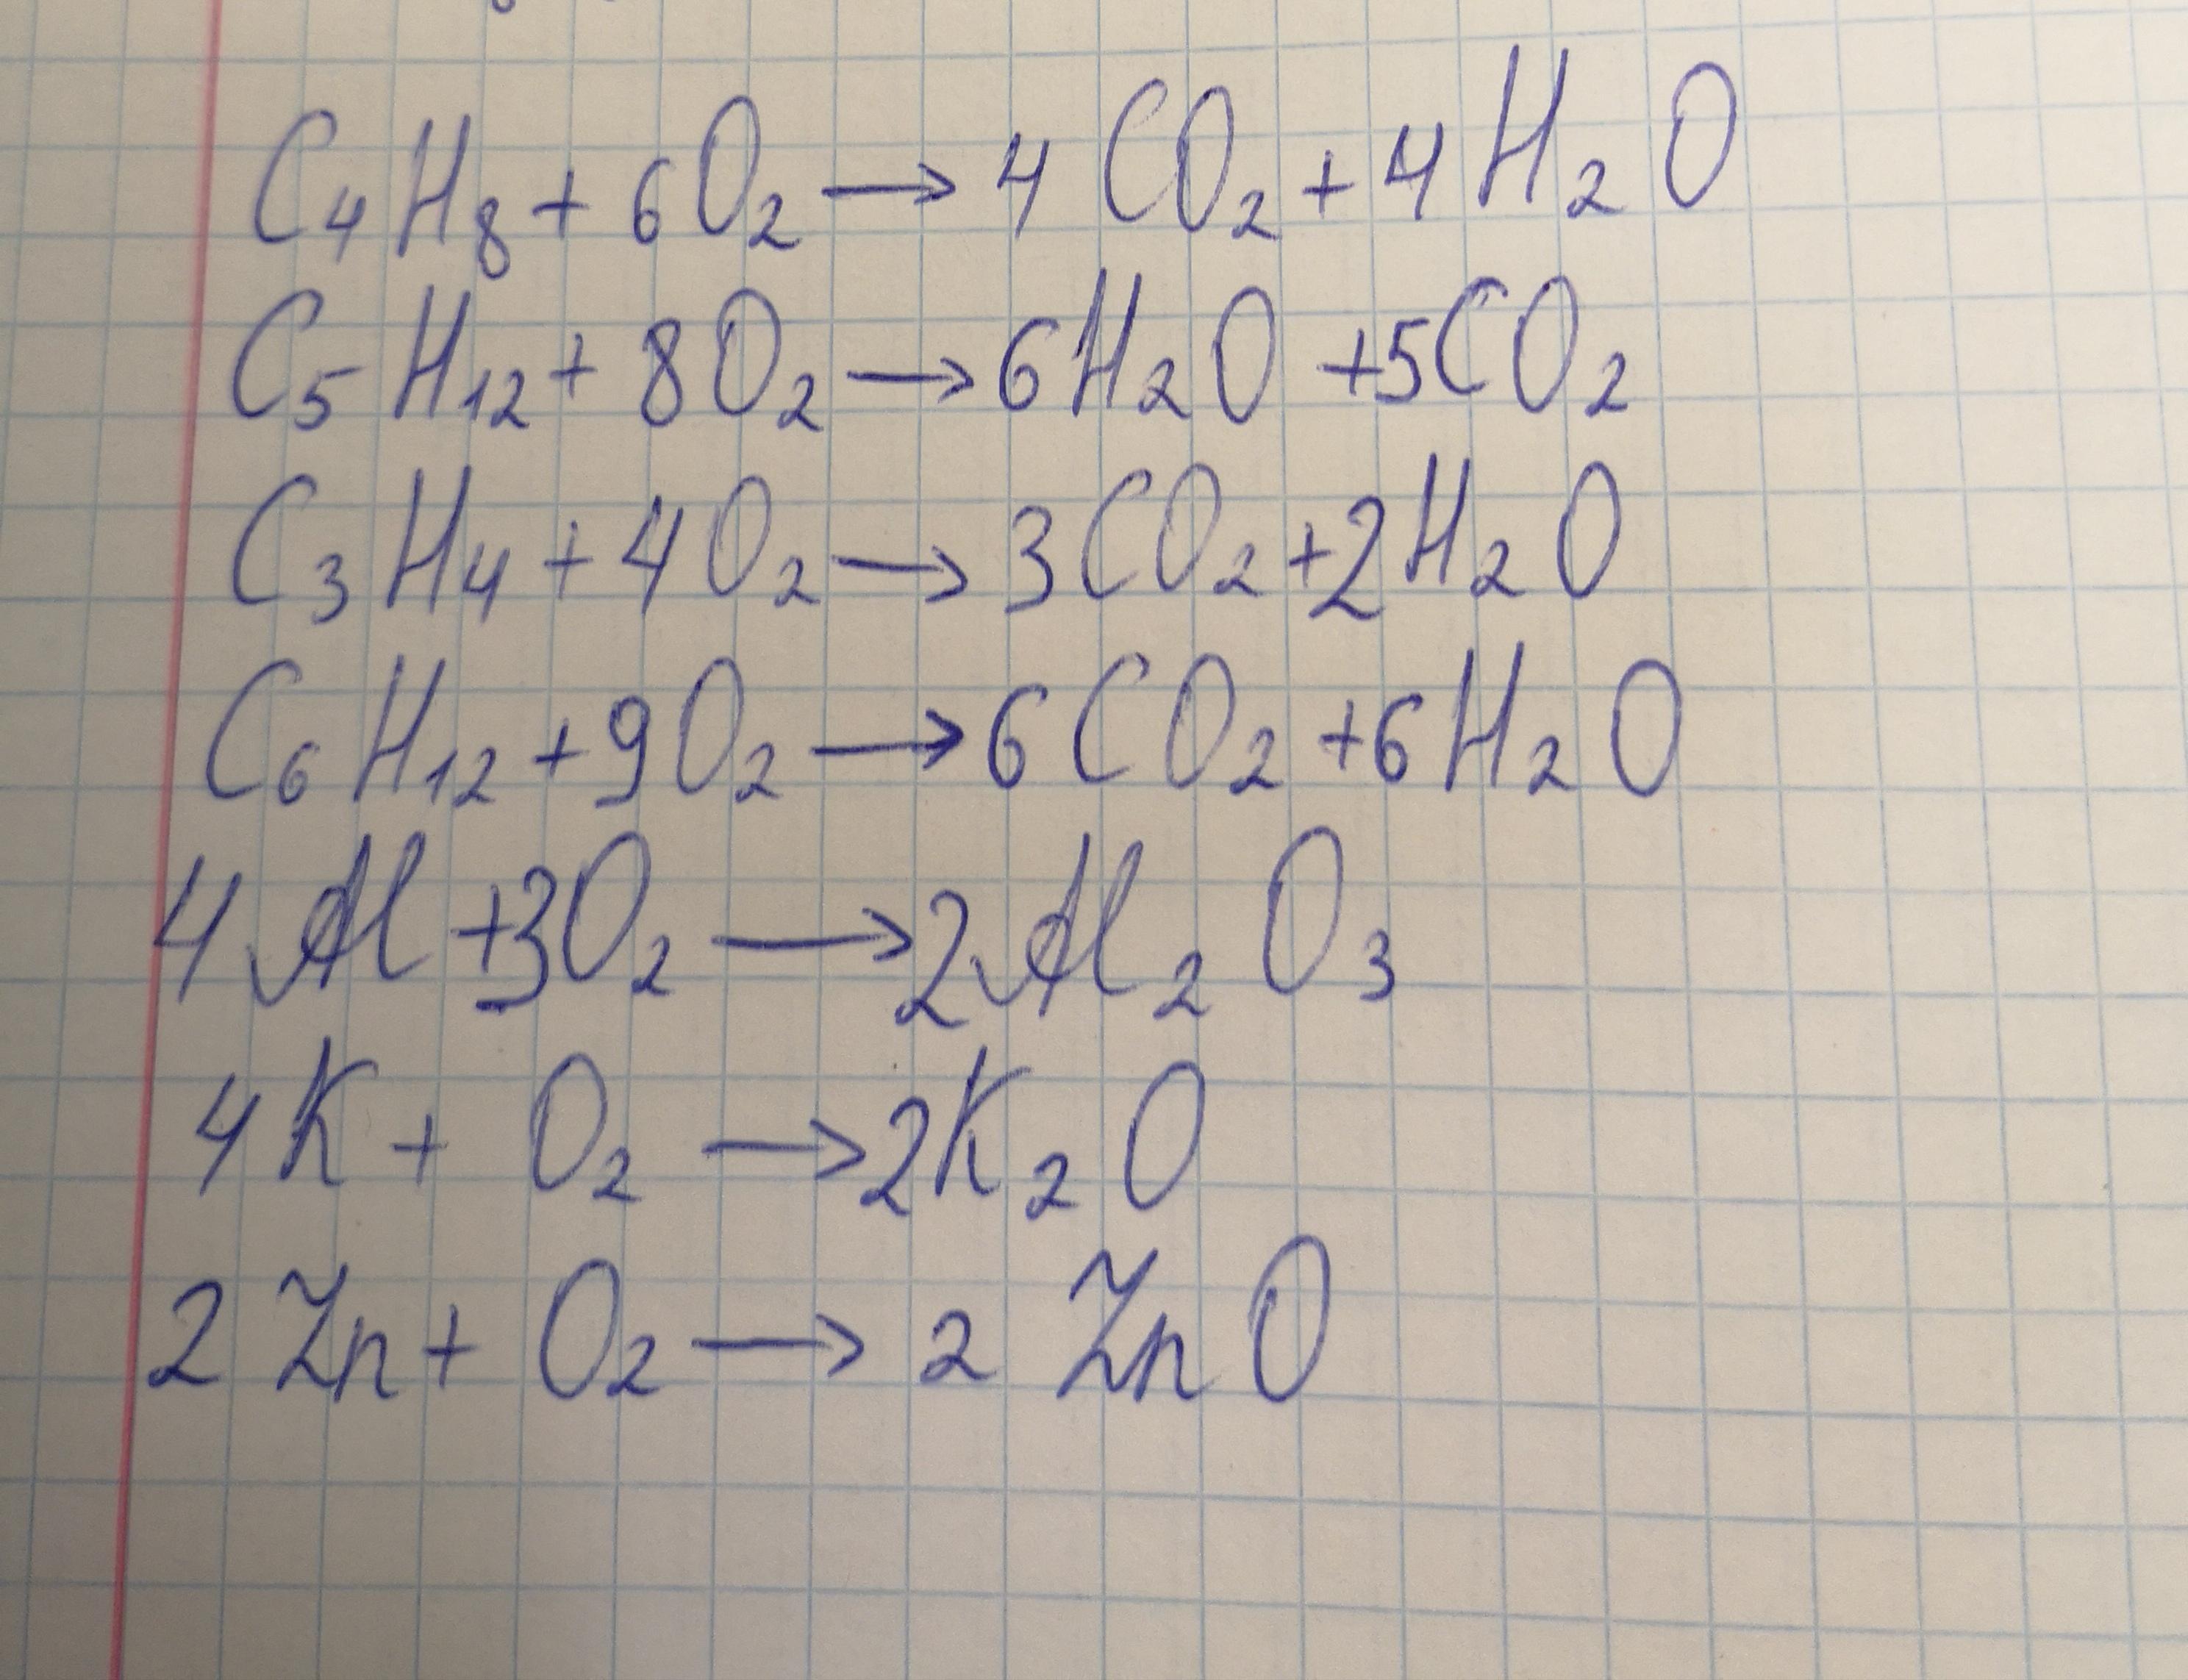 C₄H₈ + 6O₂ → 4CO₂ + 4H₂O
C₅H₁₂ + 8O₂ → 6H₂O + 5CO₂
C₃H₄ + 4O₂ → 3CO₂ + 2H₂O
C₆H₁₂ + 9O₂ → 6CO₂ + 6H₂O
4Al + 3O₂ → 2Al₂O₃
4K + O₂ → 2K₂O
2Zn + O₂ → 2ZnO